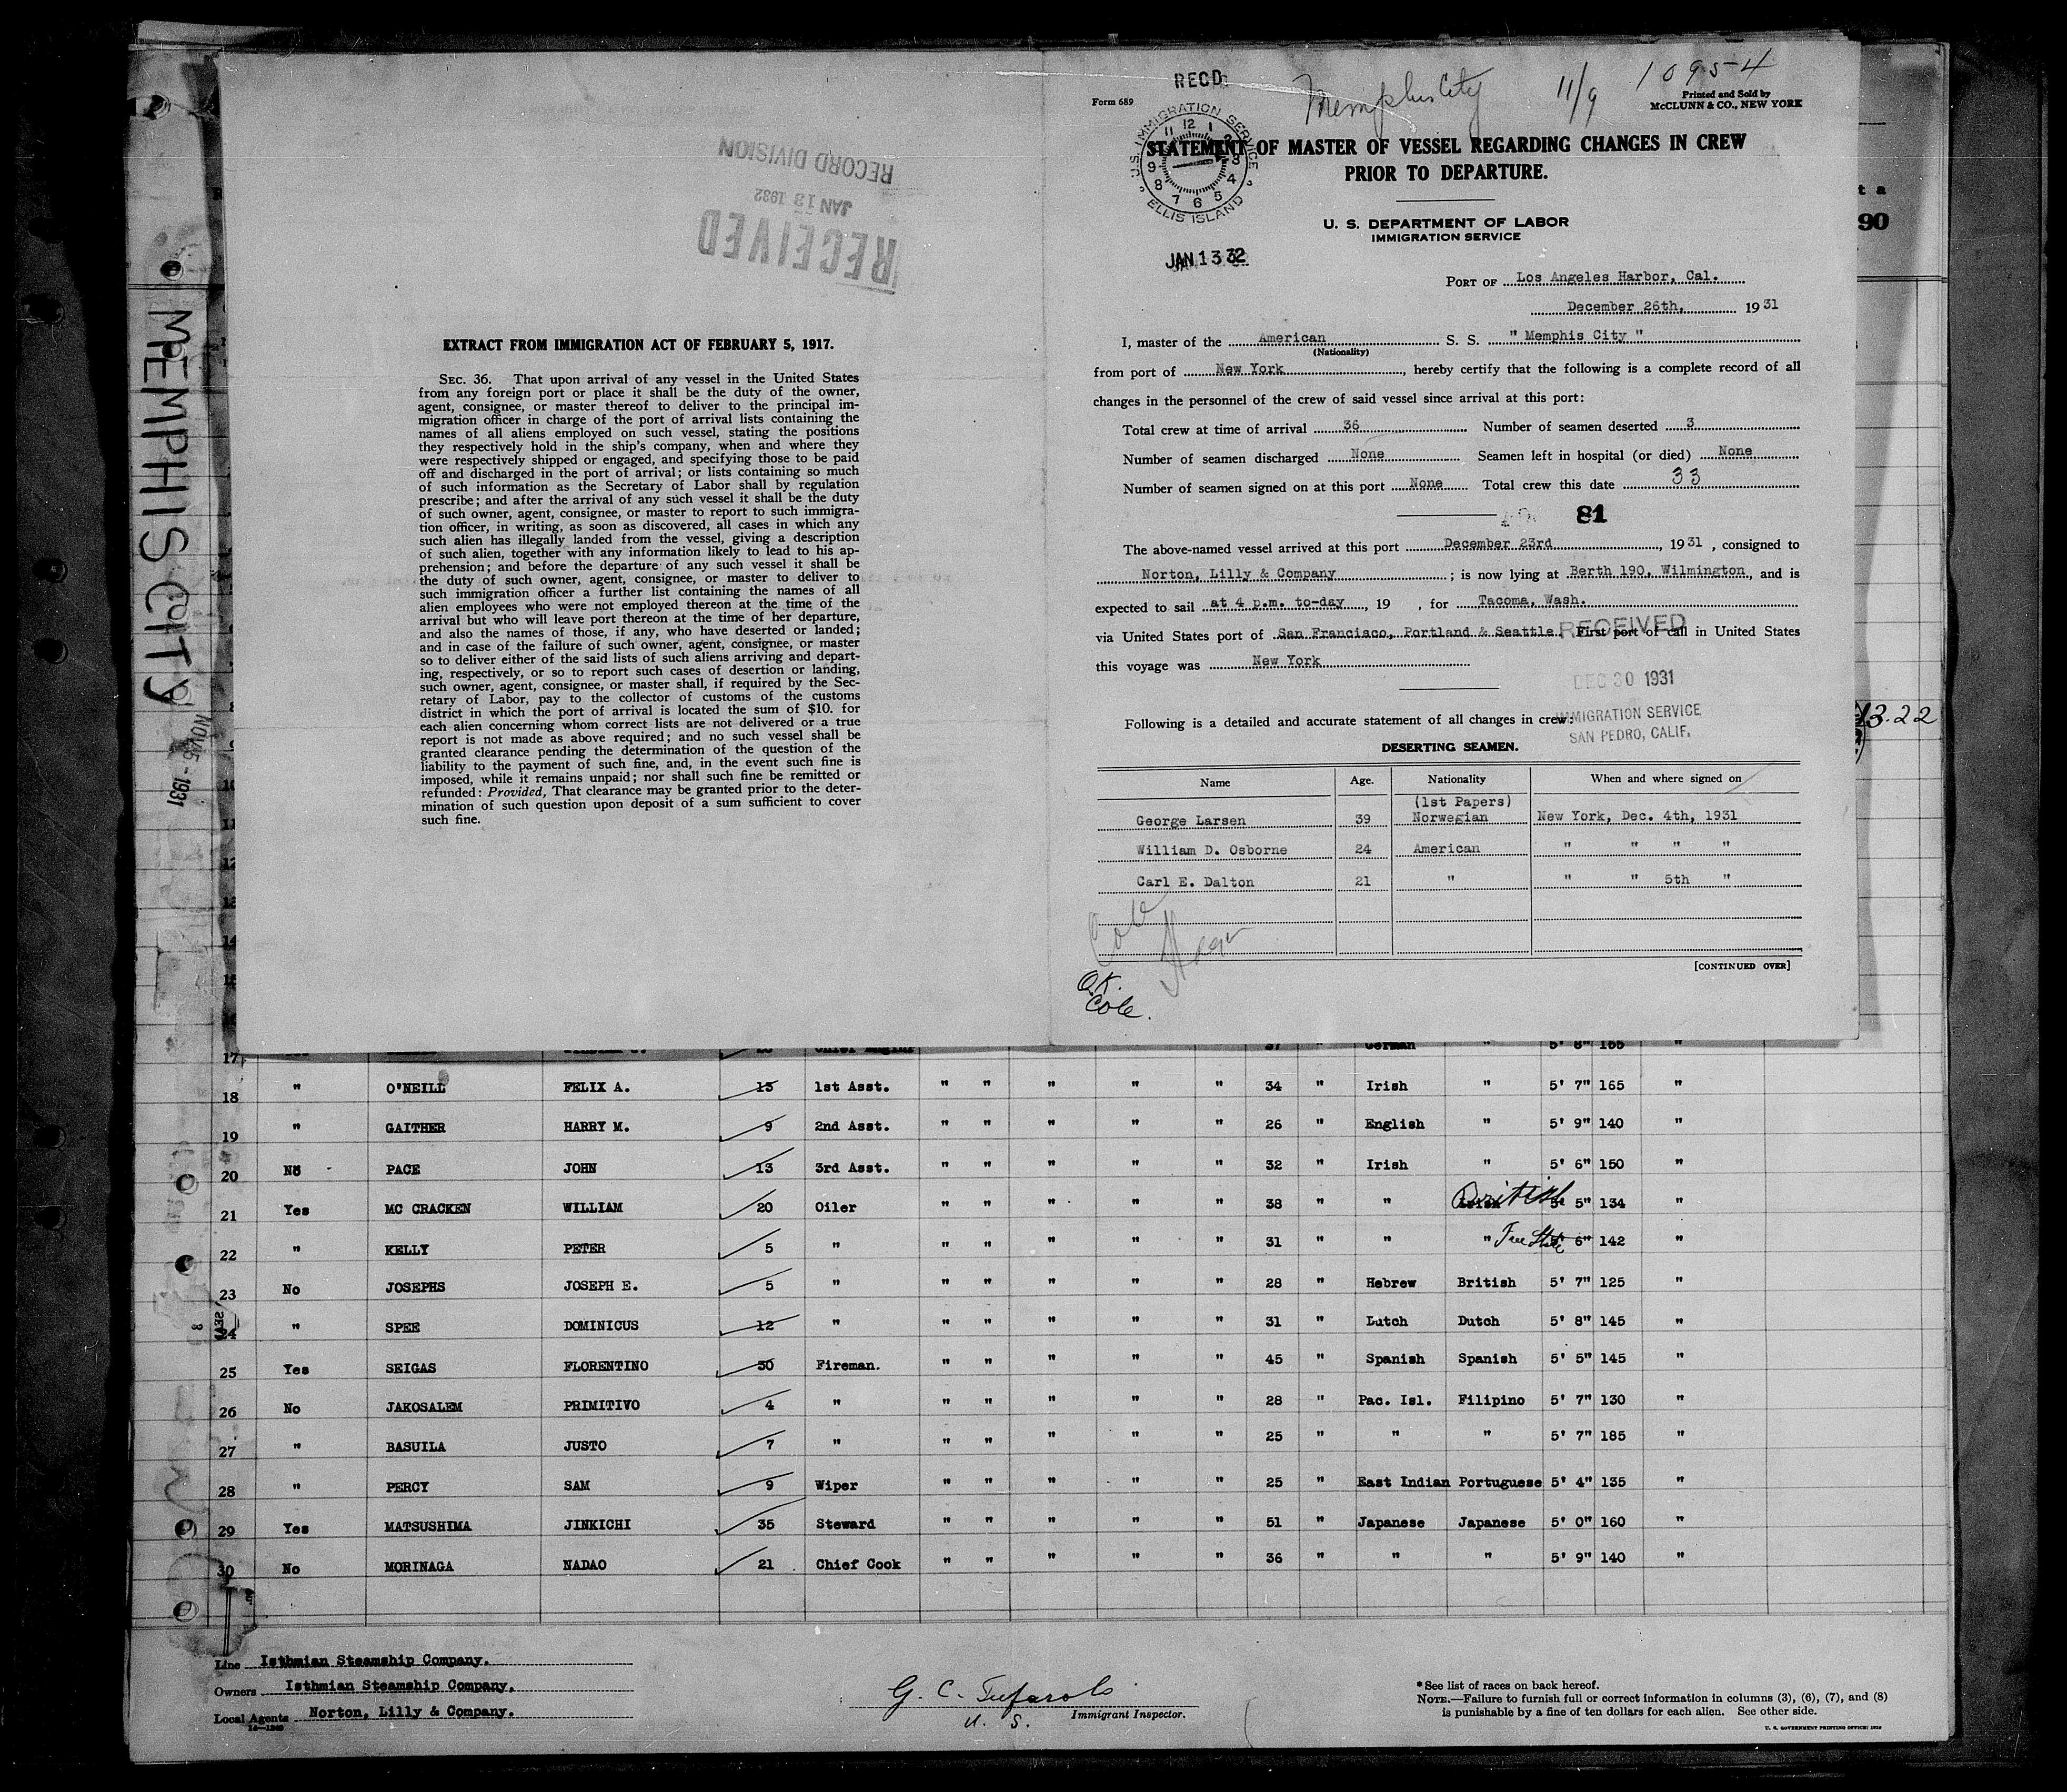 MEMPHIS CITY
NOV 5 - 1931
RECORD DIVISION
JAN 13 1932
RECEIVED
EXTRACT FROM IMMIGRATION ACT OF FEBRUARY 5, 1917.
SEC. 36. That upon arrival of any vessel in the United States
from any foreign port or place it shall be the duty of the owner,
agent, consignee, or master thereof to deliver to the principal im-
migration officer in charge of the port of arrival lists containing the
names of all aliens employed on such vessel, stating the positions
they respectively hold in the ship's company, when and where they
were respectively shipped or engaged, and specifying those to be paid
off and discharged in the port of arrival; or lists containing so much
of such information as the Secretary of Labor shall by regulation
prescribe; and after the arrival of any such vessel it shall be the duty
of such owner, agent, consignee, or master to report to such immigra-
tion officer, in writing, as soon as discovered, all cases in which any
such alien has illegally landed from the vessel, giving a description
of such alien, together with any information likely to lead to his ap-
prehension; and before the departure of any such vessel it shall be
the duty of such owner, agent, consignee, or master to deliver to
such immigration officer a further list containing the names of all
alien employees who were not employed thereon at the time of the
arrival but who will leave port thereon at the time of her departure,
and also the names of those, if any, who have deserted or landed;
and in case of the failure of such owner, agent, consignee, or master
so to deliver either of the said lists of such aliens arriving and depart-
ing, respectively, or so to report such cases of desertion or landing,
such owner, agent, consignee, or master shall, if required by the Sec-
retary of Labor, pay to the collector of customs of the customs
district in which the port of arrival is located the sum of $10. for
each alien concerning whom correct lists are not delivered or a true
report is not made as above required; and no such vessel shall be
granted clearance pending the determination of the question of the
liability to the payment of such fine, and, in the event such fine is
imposed, while it remains unpaid; nor shall such fine be remitted or
refunded: Provided, That clearance may be granted prior to the deter-
mination of such question upon deposit of a sum sufficient to cover
such fine.
RECD
Memphis City 11/9 10954
Form 689
Printed and Sold by
McCLUNN & CO., NEW YORK
U.S. IMMIGRATION SERVICE
ELLIS ISLAND
JAN 13 32
STATEMENT OF MASTER OF VESSEL REGARDING CHANGES IN CREW
PRIOR TO DEPARTURE.
U. S. DEPARTMENT OF LABOR
IMMIGRATION SERVICE
PORT OF Los Angeles Harbor, Cal.
December 26th, 1931
I, master of the American S. S. " Memphis City "
(Nationality)
from port of New York, hereby certify that the following is a complete record of all
changes in the personnel of the crew of said vessel since arrival at this port:
Total crew at time of arrival 36 Number of seamen deserted 3
Number of seamen discharged None Seamen left in hospital (or died) None
Number of seamen signed on at this port None Total crew this date 33
81
The above-named vessel arrived at this port December 23rd, 1931, consigned to
Norton, Lilly & Company; is now lying at Berth 190, Wilmington, and is
expected to sail at 4 p.m. to-day, 19 , for Tacoma, Wash.
via United States port of San Francisco, Portland & Seattle. First port of call in United States
this voyage was New York
RECEIVED
DEC 30 1931
IMMIGRATION SERVICE
SAN PEDRO, CALIF.
Following is a detailed and accurate statement of all changes in crew:
DESERTING SEAMEN.
Name Age. Nationality When and where signed on
(1st Papers)
George Larsen 39 Norwegian New York, Dec. 4th, 1931
William D. Osborne 24 American " " " "
Carl E. Dalton 21 " " " 5th "
[CONTINUED OVER]
O.K.
Cole.
t a
90
13.22
10
11
12
13
14
17 German " 5' 8" 155 "
18 " O'NEILL FELIX A. 13 1st Asst. " " " " " 34 " Irish " 5' 7" 165 "
19 " GAITHER HARRY M. 9 2nd Asst. " " " " " 26 " English " 5' 9" 140 "
20 No PACE JOHN 13 3rd Asst. " " " " " 32 " Irish " 5' 6" 150 "
21 Yes MC CRACKEN WILLIAM 20 Oiler " " " " " 38 " " British 5' 5" 134 "
22 " KELLY PETER 5 " " " " " " 31 " " " Free State 5' 6" 142 "
23 No JOSEPHS JOSEPH E. 5 " " " " " " 28 " Hebrew British 5' 7" 125 "
24 " SPEE DOMINICUS 12 " " " " " " 31 " Lutch Dutch 5' 8" 145 "
25 Yes SEIGAS FLORENTINO 30 Fireman. " " " " " 45 " Spanish Spanish 5' 5" 145 "
26 No JAKOSALEM PRIMITIVO 4 " " " " " " 28 " Pac. Isl. Filipino 5' 7" 130 "
27 " BASUILA JUSTO 7 " " " " " " 25 " " " 5' 7" 185 "
28 " PERCY SAM 9 Wiper " " " " " 25 " East Indian Portuguese 5' 4" 135 "
29 Yes MATSUSHIMA JINKICHI 35 Steward " " " " " 51 " Japanese Japanese 5' 0" 160 "
30 No MORINAGA NADAO 21 Chief Cook " " " " " 36 " " " 5' 9" 140 "
Line Isthmian Steamship Company.
Owners Isthmian Steamship Company.
Local Agents Norton, Lilly & Company.
G. C. Tufarolo
U. S. Immigrant Inspector.
* See list of races on back hereof.
NOTE.—Failure to furnish full or correct information in columns (3), (6), (7), and (8)
is punishable by a fine of ten dollars for each alien. See other side.
U. S. GOVERNMENT PRINTING OFFICE: 1929